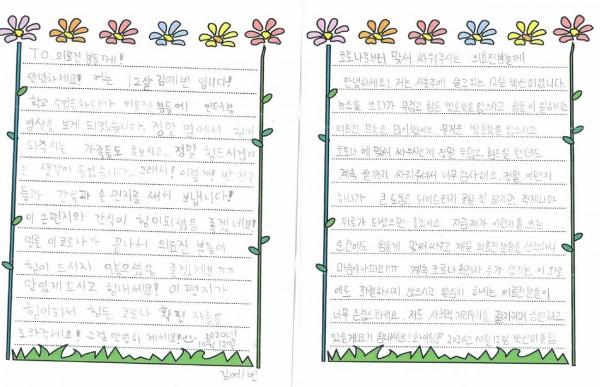 TO. 의료진 분들께!
안녕하세요! 저는 12살 김예빈 입니다!
학교 수업을 하다가 의료진 분들에 인터뷰
영상을 보게 되었습니다. 정말 옆에서 힘이
되주시는 가족들도 못보시고.. 정말 힘드시겠다
는 생각이 들었습니다.. 그래서! 이렇게! 반 친구
들과 간식과 손편지를 써서 보냅니다!
이 손편지와 간식이 힘이되셨음 좋겠네요!
얼른 이 코로나가 끝나서 의료진 분들이
힘이 드시지 않으셨음 좋겠네요 ㅠㅠ
맛있게 드시고 힘내세요! 이 편지가
힘이되서 힘든 코로나 확진 자들을
도와주세요! 그럼 안녕히 계세요!
2020년 10월 12일
김예빈
코로나로부터 맞서 싸워주시는 의료진분들께
안녕하세요! 저는 살고있는 12살 박선미입니다.
뉴스를 보니가 무겁고 힘든 방호복을 입으시고 힘들게 일하시는
의료진 분들을 많이봤어요. 무거운 방호복을 입으시고
코로나에 맞서 싸우시는게 정말 두렵고, 힘드실 텐데도
계속 끝까지 싸워주셔서 너무 감사해요. 정말 이편지
하나가 큰 도움은 되어드리지 못할 것 같지만 작게나마
위로가 되었으면 좋겠어요. 지금제가 이편지를 쓰는
순간에도 힘들게 맞서싸우고 계실 의료진분들을 생각하니
마음이아파요ㅠㅠ 계속 코로나 확진자 수가 생기는 이 와중
에도 좌절하시지 않으시고 열심히 하시는 의료진분들이
너무 존경스러워요. 저도 사회적 거리두기를 잘지키며 응원하고
있을게요!! 힘내세요! 화이팅! 2020년 10월 12일 박선미 올림